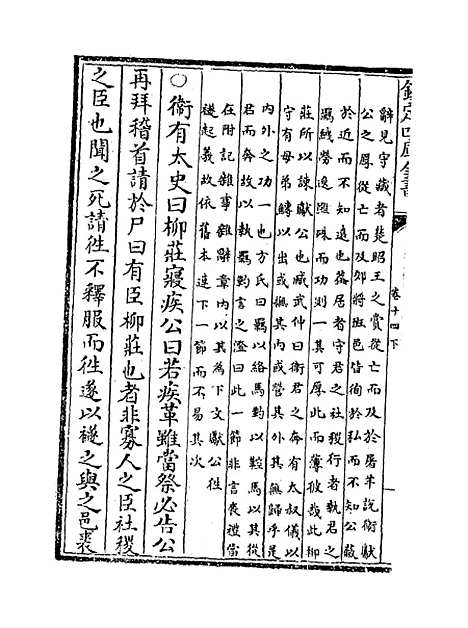 欽定四庫全書
卷十四下
辭見守藏者楚昭王之賞從亡而及於屠羊說衛獻
公之厚從亡而及郊將班邑皆徇於私而不知公蔽
於近而不知遠也蓋居者守君之社稷行者執君之
羈絏勞逸雖殊而功則一其可厚此而薄彼哉此柳
莊所以諫獻公也臧武仲曰衛君之奔有太叔儀以
守有母弟鱄以出或撫其內或營其外其無歸乎是
內外之功一也方氏曰羈以絡馬靮以鞚馬以其從
君而奔故以執羈靮言之澄曰此一節非言喪禮當
在附記雜事雜辭章內以其為下文獻公徃
襚起義故依舊本連下一節而不易其次
○衛有太史曰柳莊寢疾公曰若疾革雖當祭必告公
再拜稽首請於尸曰有臣柳莊也者非寡人之臣社稷
之臣也聞之死請徃不釋服而徃遂以襚之與之邑裘